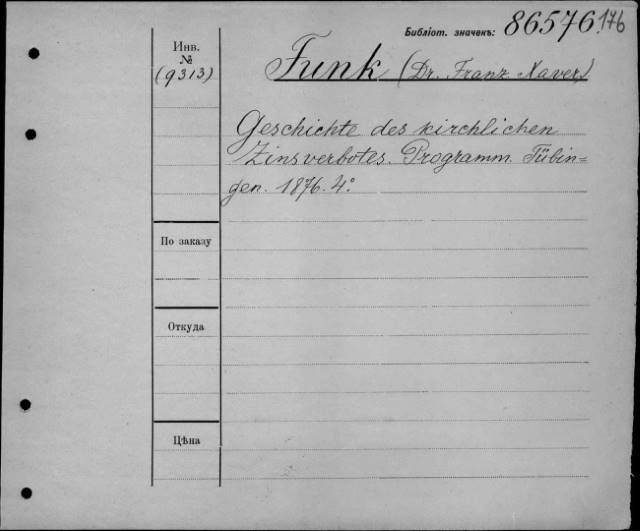 Библіот. значекъ: 86576. 176
Инв.
№
(9313)
Funk (Dr. Franz Xaver)
Geschichte des kirchlichen
Zinsverbotes. Programm. Tübin=
gen. 1876. 4º
По заказу
Откуда
Цѣна